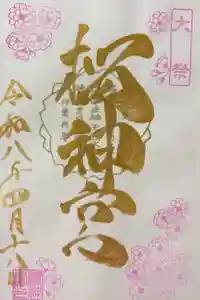 大祭
桜神宮
令和八年四月十八日